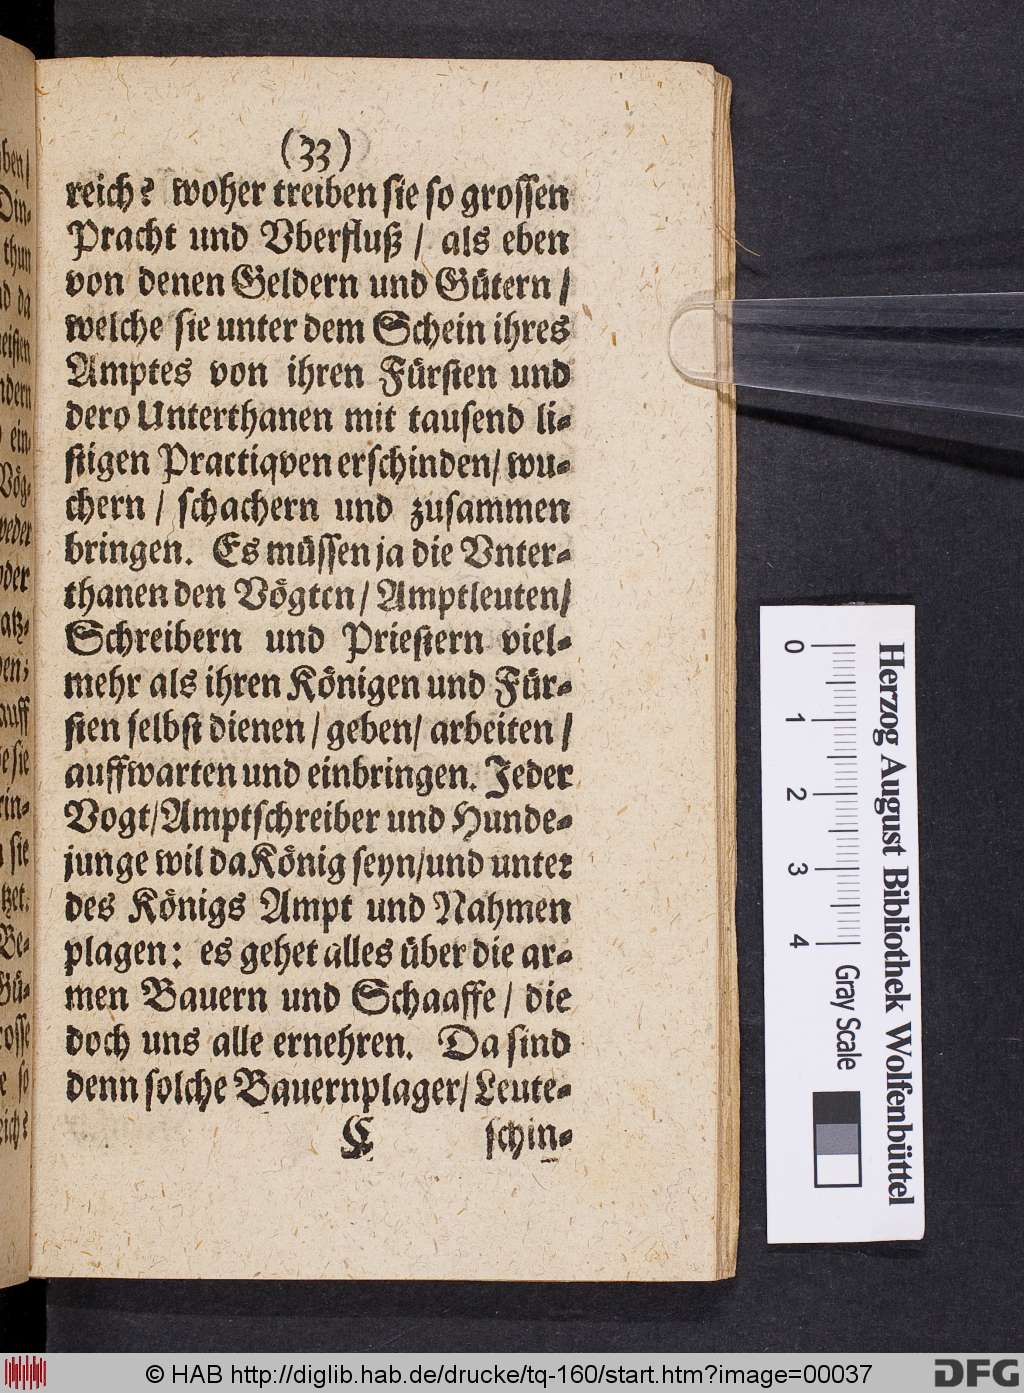 ben/
Din-
thun
nd da
eisten
ndern
ein-
Vög-
weder
oder
atz-
ben;
auff
e sie
rin-
sie
tzet.
Be-
Gü-
rosse
e so
eich?
(33)
reich? woher treiben sie so grossen
Pracht und Vberfluß / als eben
von denen Geldern und Gütern /
welche sie unter dem Schein ihres
Amptes von ihren Fürsten und
dero Unterthanen mit tausend li-
stigen Practiqven erschinden/ wu-
chern / schachern und zusammen
bringen. Es müssen ja die Vnter-
thanen den Vögten / Amptleuten/
Schreibern und Priestern viel-
mehr als ihren Königen und Für-
sten selbst dienen / geben/ arbeiten /
auffwarten und einbringen. Jeder
Vogt/Amptschreiber und Hunde-
junge wil da König seyn/und unter
des Königs Ampt und Nahmen
plagen: es gehet alles über die ar-
men Bauern und Schaaffe / die
doch uns alle ernehren. Da sind
denn solche Bauernplager/ Leute-
C schin-
Herzog August Bibliothek Wolfenbüttel
0 1 2 3 4 Gray Scale
© HAB http://diglib.hab.de/drucke/tq-160/start.htm?image=00037
DFG